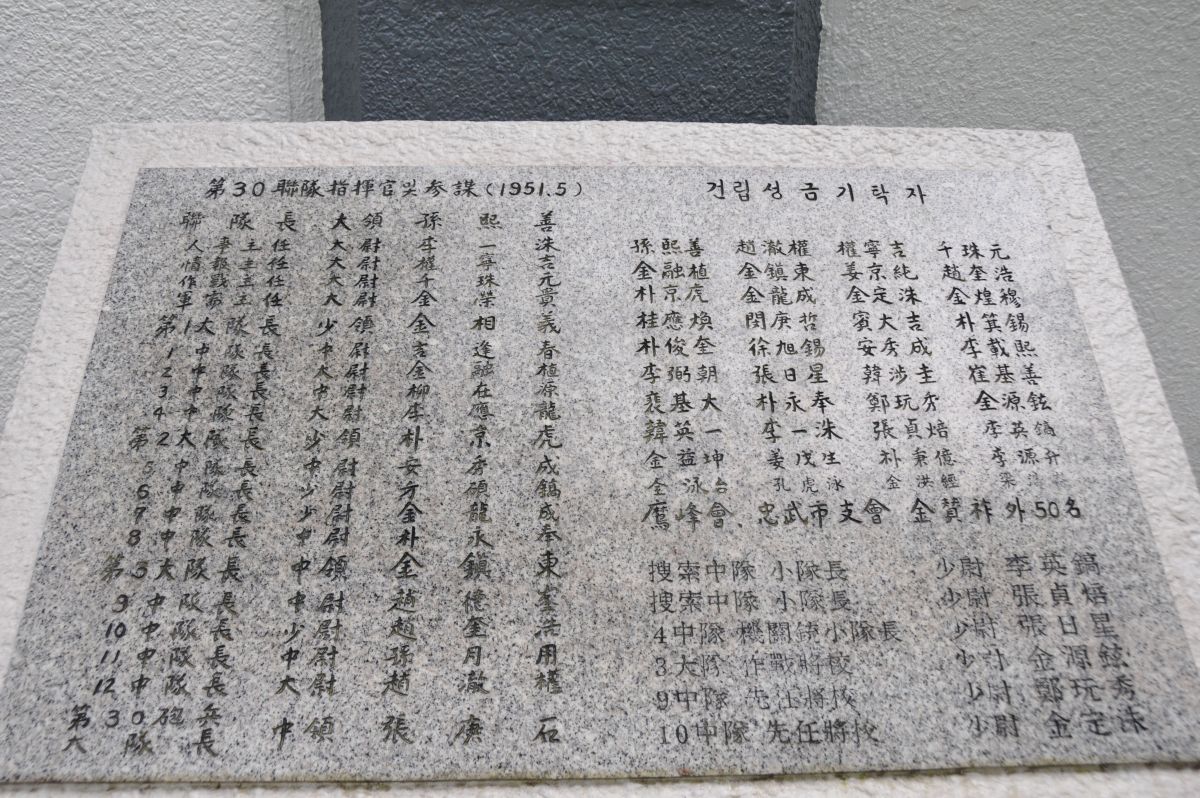 第30聯隊指揮官및參謀(1951.5)
聯隊長 大領 孫熙善
人事主任 大尉 李一洙
情報主任 大尉 權寧吉
作戰主任 大尉 千珠元
軍需主任 大尉 金榮貴
第1大隊長 少領 金相義
1中隊長 中尉 吉逢春
2中隊長 大尉 金融植
3中隊長 中尉 柳在源
4中隊長 大尉 李應龍
第2大隊長 少領 朴京虎
5中隊長 中尉 安秀成
6中隊長 少尉 方碩鎬
7中隊長 少尉 金龍成
8中隊長 中尉 朴永奉
第3大隊長 中領 金鎭東
9中隊長 中尉 趙
10中隊長 少尉 趙奎浩
11中隊長 中尉 孫月用
12中隊長 大尉 趙澈權
第30砲兵大隊長 中領 張庚石
건립성금기탁자
孫熙善 趙澈權 權寧吉 千珠元
金融植 金鎭東 姜京純 趙奎浩
朴京虎 金龍成 金定洙 金煌穆
桂應煥 閔庚哲 賓大吉 朴箕錫
朴俊奎 徐旭錫 安秀成 李載熙
李弼朝 張日星 韓涉主 崔基善
裵基大 朴永奉 鄭玩秀 金源鉉
韓英一 李一洙 張貞焙 李英鎬
金益坤 姜戊生 朴秉億 李源
金泳 孔虎泳 金洪經
鷹峰會 忠武市支會 金贊祚外50名
搜索中隊 小隊長 少尉 李英鎬
搜索中隊 小隊長 少尉 張貞焙
4中隊 機關銃小隊長 少尉 張日星
3大隊 作戰將校 少尉 金源鉉
9中隊 先任將校 少尉 鄭玩秀
10中隊 先任將校 少尉 金定洙